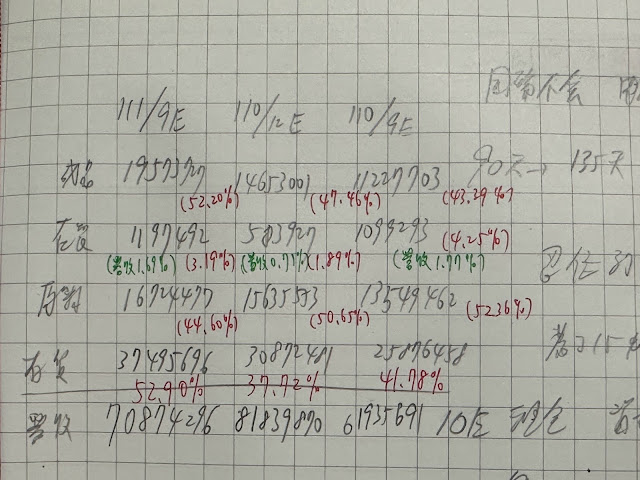 111/9E 110/12E 110/9E
成品 19573727 14653001 11227703 90天→135天
(52.20%) (47.46%) (43.39%)
在製 1197492 583927 1099293 (4.25%)
(營收1.69%) (3.19%) (營收0.71%) (1.89%) (營收1.77%)
原料 16724477 15635553 13549462 (52.36%)
(44.60%) (50.65%)
存貨 37495696 30872481 25876458
52.90% 37.72% 41.78%
營收 70874296 81839870 61935691